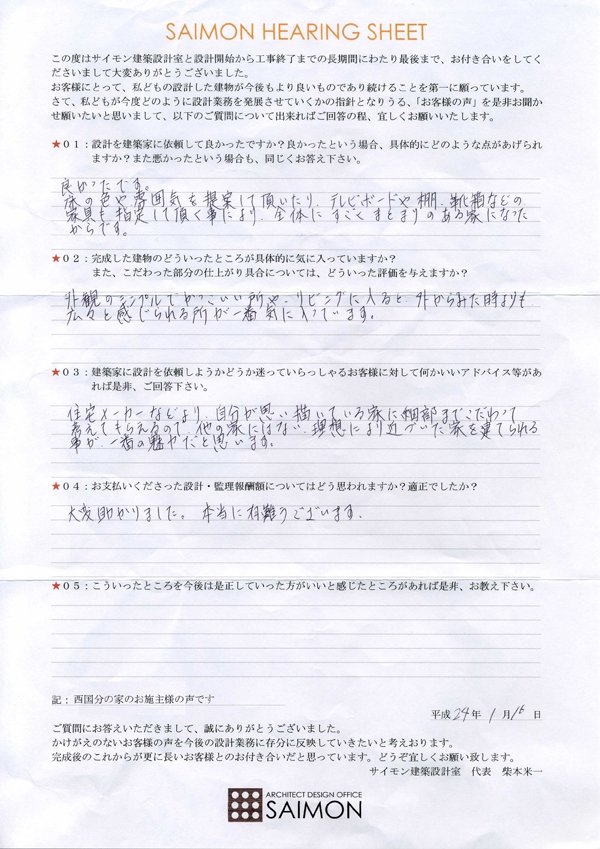 SAIMON HEARING SHEET
この度はサイモン建築設計室と設計開始から工事終了までの長期間にわたり最後まで、お付き合いをしてく
ださいまして大変ありがとうございました。
お客様にとって、私どもの設計した建物が今後もより良いものであり続けることを第一に願っています。
さて、私どもが今度どのように設計業務を発展させていくかの指針となりうる、「お客様の声」を是非お聞か
せ願いたいと思いまして、以下のご質問について出来ればご回答の程、宜しくお願いいたします。
★01：設計を建築家に依頼して良かったですか？良かったという場合、具体的にどのような点があげられ
ますか？また悪かったという場合も、同じくお答え下さい。
良かったです。
床の色や雰囲気を提案して頂いたり、テレビボードや棚、靴箱などの
家具も指定して頂く事により、全体にすごくまとまりのある家になった
からです。
★02：完成した建物のどういったところが具体的に気に入っていますか？
また、こだわった部分の仕上がり具合については、どういった評価を与えますか？
外観のシンプルでかっこいい所や、リビングに入ると、外からみた時よりも
広々と感じられる所が一番気に入っています。
★03：建築家に設計を依頼しようかどうか迷っていらっしゃるお客様に対して何かいいアドバイス等があ
れば是非、ご回答下さい。
住宅メーカーなどより、自分が思い描いている家に細部までこだわって
考えてもらえるので、他の家にはない、理想により近づいた家を建てられる
事が、一番の魅力だと思います。
★04：お支払いくださった設計・監理報酬額についてはどう思われますか？適正でしたか？
大変助かりました。本当に有難うございます。
★05：こういったところを今後は是正していった方がいいと感じたところがあれば是非、お教え下さい。
記：西国分の家のお施主様の声です
平成24年1月16日
ご質問にお答えいただきまして、誠にありがとうございました。
かけがえのないお客様の声を今後の設計業務に存分に反映していきたいと考えおります。
完成後のこれからが更に長いお客様とのお付き合いだと思っています。どうぞ宜しくお願い致します。
サイモン建築設計室　代表　柴本米一
ARCHITECT DESIGN OFFICE
SAIMON